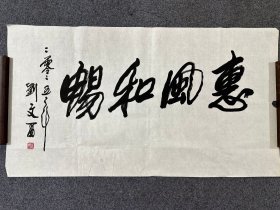 惠風和暢
二零二五年
劉文西